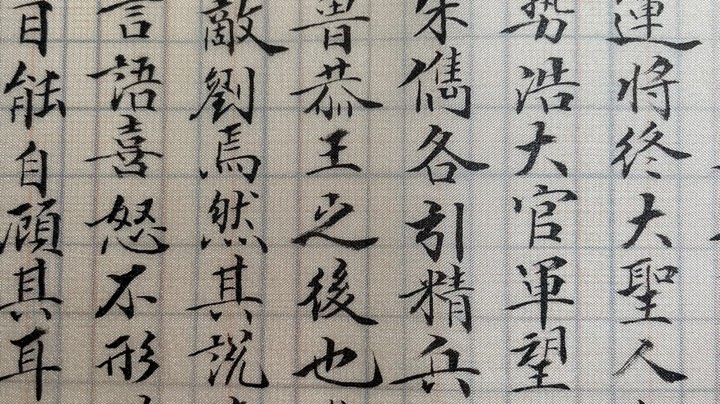 運將終大聖人
勢浩大官軍望
朱儁各引精兵
魯恭王之後也
敵劉焉然其説
言語喜怒不形
目能自顧其耳